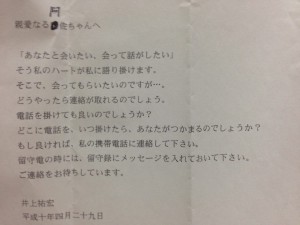 親愛なる佐ちゃんへ
「あなたと会いたい、会って話がしたい」
そう私のハートが私に語り掛けます。
そこで、会ってもらいたいのですが…。
どうやったら連絡が取れるのでしょう。
電話を掛けても良いのでしょうか?
どこに電話を、いつ掛けたら、あなたがつかまるのでしょうか?
もし良ければ、私の携帯電話に連絡して下さい。
留守電の時には、留守録にメッセージを入れておいて下さい。
ご連絡をお待ちしています。
井上祐宏
平成十年四月二十九日